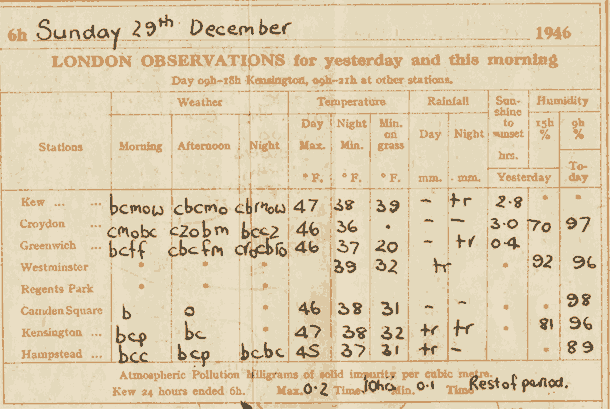 6h Sunday 29th December 1946
LONDON OBSERVATIONS for yesterday and this morning
Day 09h-18h Kensington, 09h-21h at other stations.
Weather Temperature Rainfall Sunshine to sunset hrs. Humidity
Stations Morning Afternoon Night Day Max. °F. Night Min. °F. Min. on grass °F. Day mm. Night mm. Yesterday 15h % 9h % To-day
Kew ... ... bcmow cbcmo 47 38 39 - tr 2.8 • •
Croydon ... cmobc czobm bccz 46 36 • - - 3.0 70 97
Greenwich ... bcff cbcfm 46 37 20 - tr 0.4
Westminster • • • 39 32 tr • 92 96
Regents Park • • • •
Camden Square b o • 46 38 31 - - • 98
Kensington ... bcp bc • 47 38 32 tr tr • 81 96
Hampstead ... bcc bcp bcbc 45 37 31 tr - • 89
Atmospheric Pollution Miligrams of solid impurity per cubic metre.
Kew 24 hours ended 6h. Max. 0.2 Time 10hrs Min. 0.1 Time Rest of period.